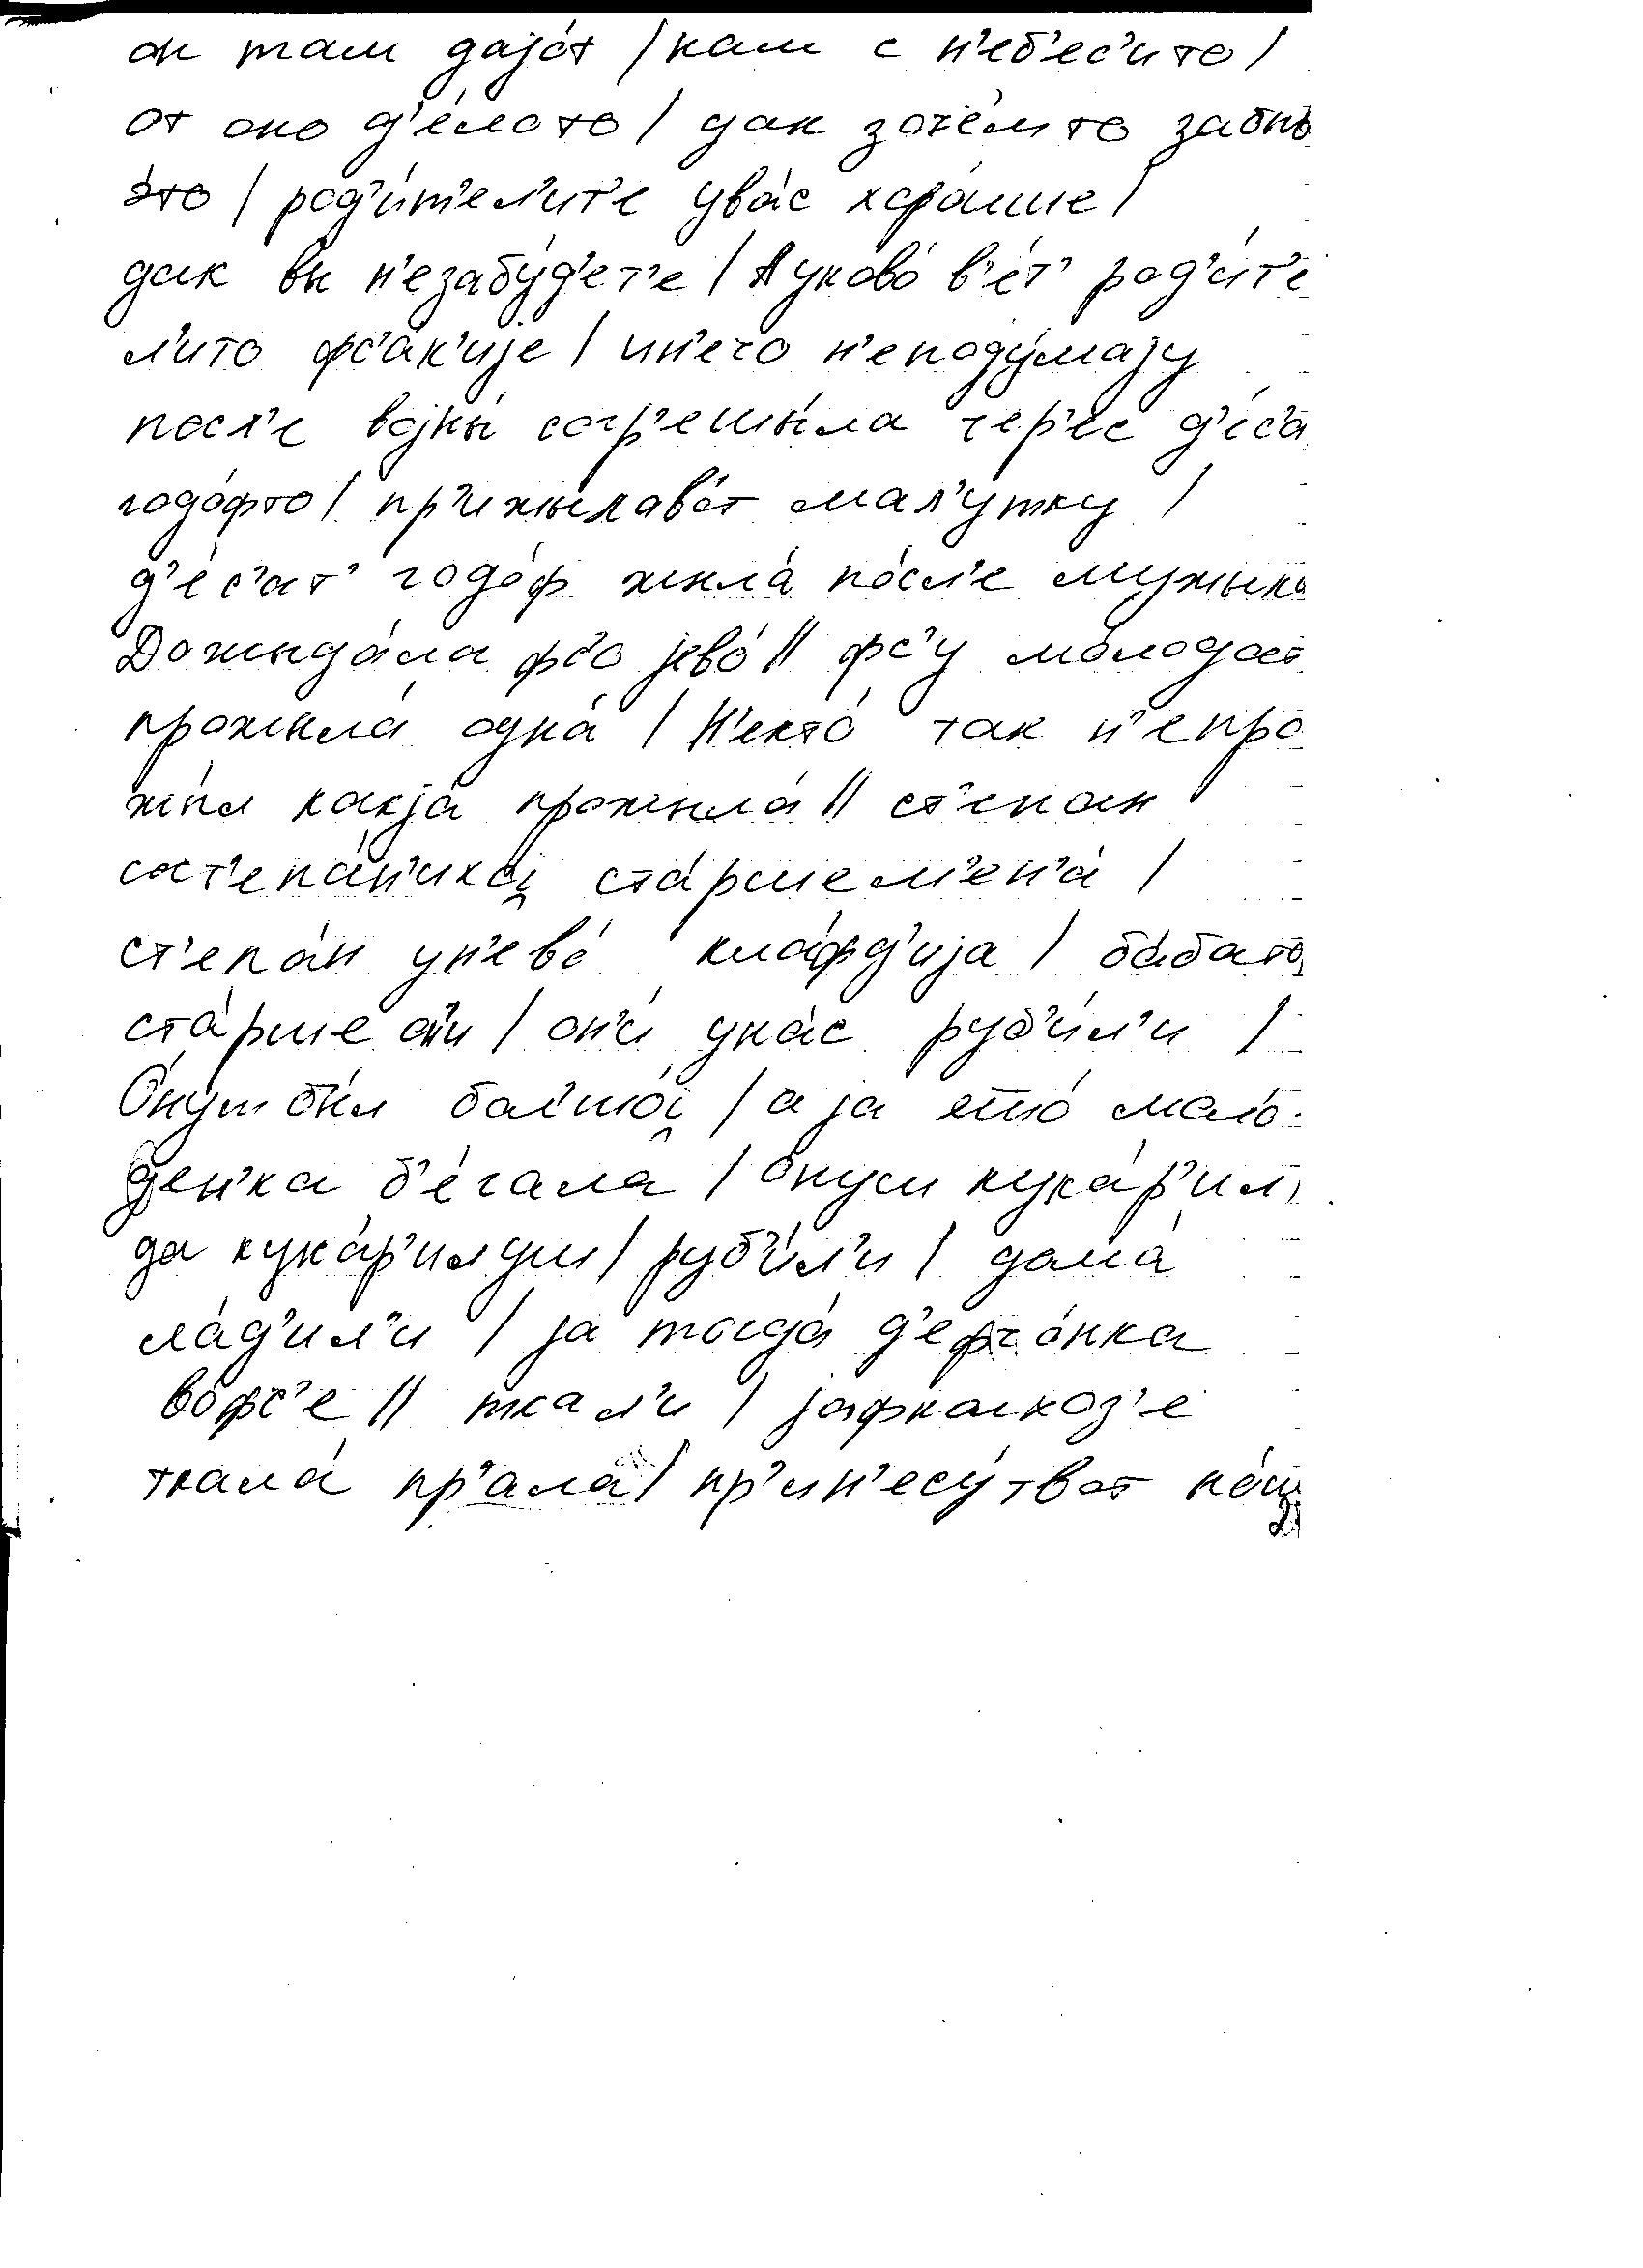 он там даjо́т / нам с н'еб'ес'ито /
от оно д'е́лото / дак зоче́мто забы
э́то / род'и́т'ел'ит'е ува́с хоро́шие /
дак вы н'езабу́д'ет'е / А уково́ в'е́т' род'и́т'е
л'ито фс'а́к'иjе / ин'ечо н'еподу́маjу
посл'е воjны́ согр'ешы́ла чер'ес д'е́с'а
годо́фто / пр'ижыла во́т мал'утку /
д'е́с'ат' годо́ф жыла́ по́сл'е мужыка
Дожыда́ла фс'о jево́ // фс'у мо́лодост
прожыла́ одна́ / Н'екто́ так н'епро
жы́л какjа́ прожыла́ // ст'епан
сост'епа́н'ихой ста́ршем'ен'а́ /
ст'епа́н ун'ево́ кла́фд'иjа / ба́бато
ста́рше он'и / он'и́ уна́с руб'и́л'и /
О́нуш бы́л бол'шо́й / а jа ешшо́ моло́
ден'ка б'е́гала / о́нуш кука́р'ил
да кука́р'илуш / руб'и́л'и / дома́
ла́д'ил'и / jа тогда́ д'ефчо́нка
во́фс'е // ткал'и / jафколхоз'е
ткала́ пр'ала́ / пр'ин'есу́т вот